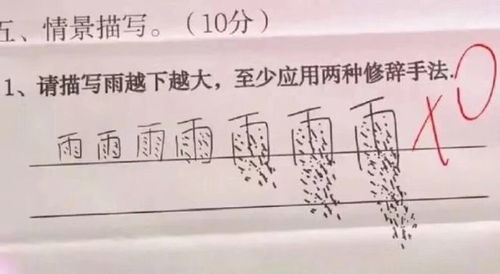 五、情景描写。（10分）
1、请描写雨越下越大，至少应用两种修辞手法.
雨雨雨雨雨雨雨
×0